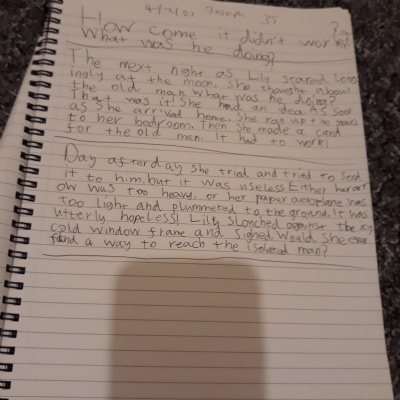 4/2/21 Joseph 3T
How come it didn't work?
What was he doing?
The next night as Lily stared long
ingly at the moon. She thought about
the old man. What was he doing?
That was it! She had an idea. AS soon
as she arrived home, she ran up the stairs
to her bodyroom. Then she made a card
for the old man. It had to work!
Day after day she tried and tried to send
it to him. but it was useless Either her arr
ow was too heavy, or her paper aeroplane was
too light and plummeted to the ground. It was
utterly hopeless! Lily slonched against the icy
cold window frame and sighed. Would she ever
find a way to reach the isolated man?